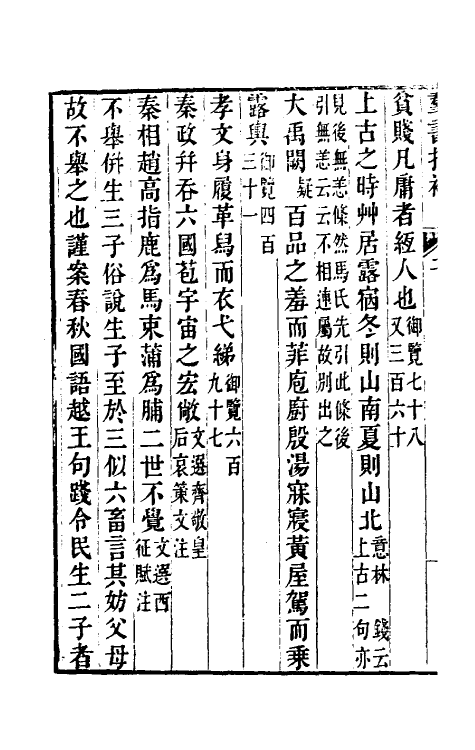 羣書拾補
貧賤凡庸者經人也御覽七十八又三百六十
上古之時艸居露宿冬則山南夏則山北意林 錢云上古二句亦
見後無恙條然馬氏先引此條後引無恙云云不相連屬故別出之
大禹闕疑百品之羞而菲庖廚殷湯寐寢黃屋駕而乘
露輿御覽四百三十一
孝文身履革舄而衣弋綈御覽六百九十七
秦政幷吞六國苞宇宙之宏敞文選齊敬皇后哀策文注
秦相趙高指鹿爲馬束蒲爲脯二世不覺文選西征賦注
不舉倂生三子俗說生子至於三似六畜言其妨父母
故不舉之也謹案春秋國語越王句踐令民生二子者